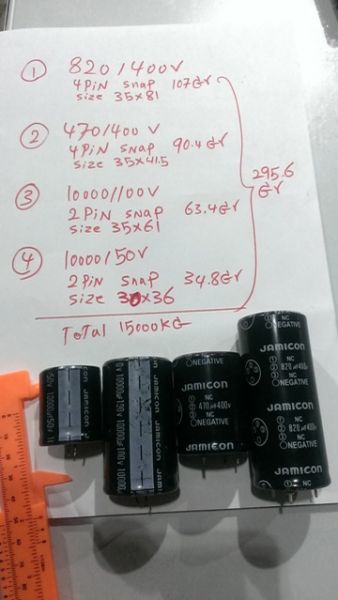 ① 820/400V
4 PiN SNAP 107Gr
Size 35x81
② 470/400 V
4 PiN SNAP 90.4Gr
Size 35x41.5
③ 10000/100V
2 PiN SNAP 63.4Gr
Size 35x61
④ 10000/50V
2 PiN SNAP 34.8Gr
Size 30x36
295.6
Gr
ToTal 15000KG
NC
NEGATIVE
JAMICON
NC
820μF400v
NEGATIVE
JAMICON
NC
820μF400v
NEGATIVE
JAMICON
NEGATIVE
JAMICON
NC
470μF400v
NEGATIVE
JAMICON